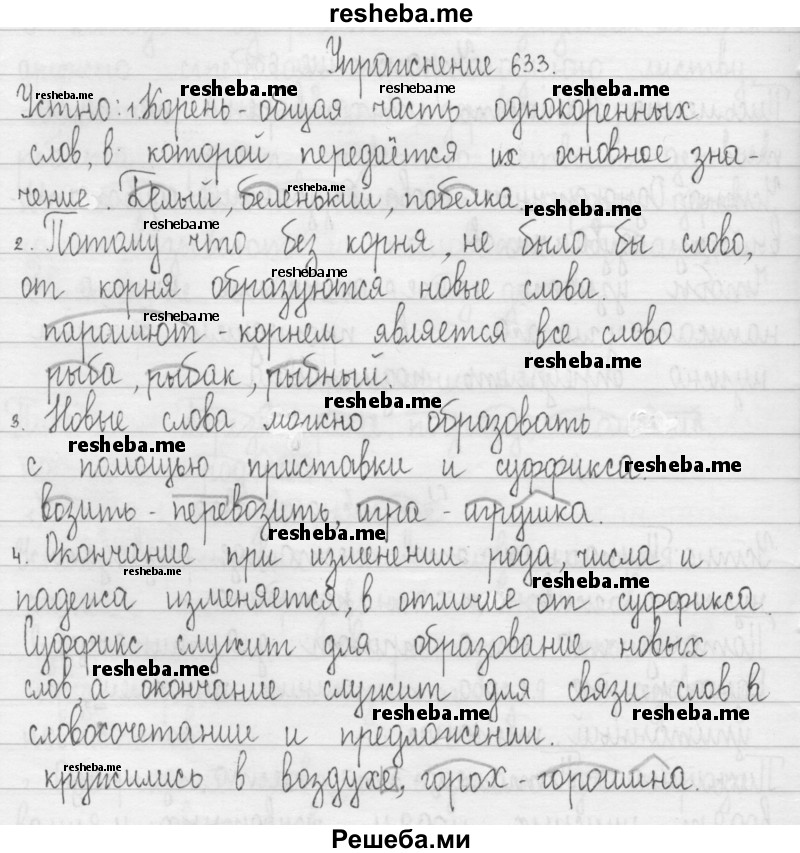 resheba.me
Упражнение 633.
resheba.me resheba.me resheba.me resheba.me
Устно: 1. Корень - общая часть однокоренных
слов, в которой передаётся их основное зна-
чение. Белый, беленький, побелка.
resheba.me resheba.me
resheba.me
2. Потому что без корня, не было бы слово,
resheba.me
от корня образуются новые слова.
resheba.me
парашют - корнем является все слово
resheba.me
рыба, рыбак, рыбный.
resheba.me
3. Новые слова можно образовать
resheba.me
с помощью приставки и суффикса.
resheba.me
возить - перевозить, игра - игрушка.
resheba.me
4. Окончание при изменении рода, числа и
resheba.me resheba.me
падежа изменяется, в отличие от суффикса.
Суффикс служит для образование новых
resheba.me
слов, а окончание служит для связи слов в
resheba.me resheba.me
словосочетании и предложении.
resheba.me
кружились в воздухе, горох - горошина.
Решеба.ми